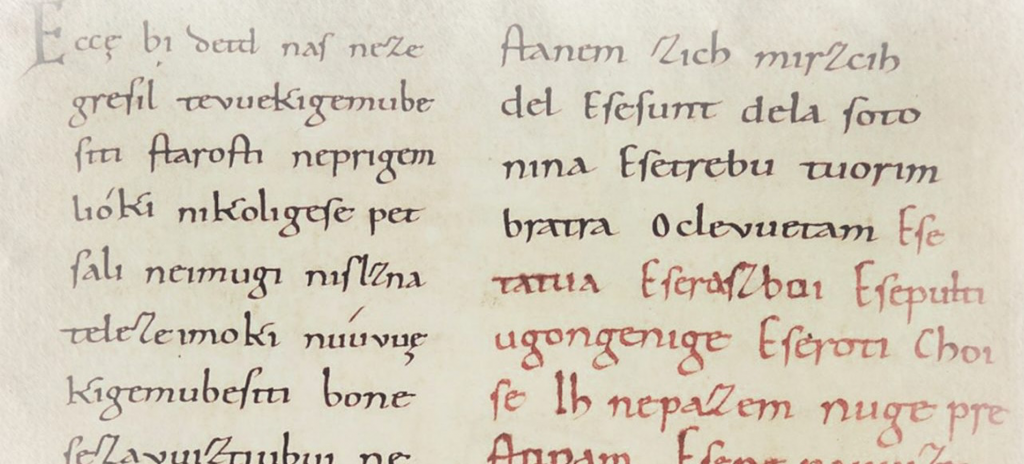 Eccę bi detd naſ neze
greſil tevuekigemube
ſiti ſtaroſti neprigem
lióki nikoligeſe pet
ſali neimugi niſlzna
telezeimoki núúvuę
kigemubeſiti bone
ſtanem zich mirzcih
del Eſeſunt dela ſoto
nina Eſetrebu tuorim
bratra Oclevuetam Eſe
tatua Eſeraſzboi Eſepulti
ugongenige Eſeroti Choi
ſe Ih nepazem nuge pre